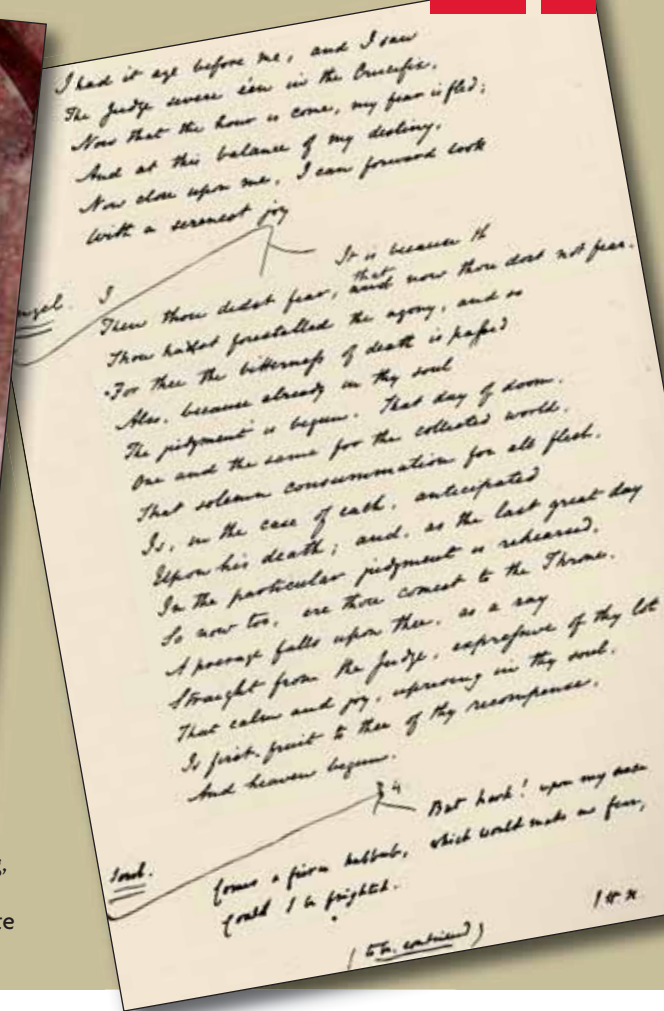 I had it aye before me, and I saw
The Judge severe e'en in the Crucifix.
Now that the hour is come, my fear is fled;
And at this balance of my destiny,
Now close upon me, I can forward look
With a serenest joy
It is because th
ngel. I
that
Then thou didst fear, and now thou dost not fear.
Thou hadst forestalled the agony, and so
For thee the bitterness of death is passed
Also, because already in thy soul
The judgment is begun. That day of doom,
One and the same for the collected world,
That solemn consummation for all flesh,
Is, in the case of each, anticipated
Upon his death; and, as the last great day
In the particular judgment is rehearsed,
So now too, ere thou comest to the Throne,
A presage falls upon thee, as a ray
Straight from the Judge, expressive of thy lot
That calm and joy, uprising in thy soul,
Is first-fruit to thee of thy recompense,
And heaven begun.
34
But hark! upon my sense
Soul.
Comes a fierce hubbub, which would make me fear,
Could I be frighted.
(to be continued)
g,
re